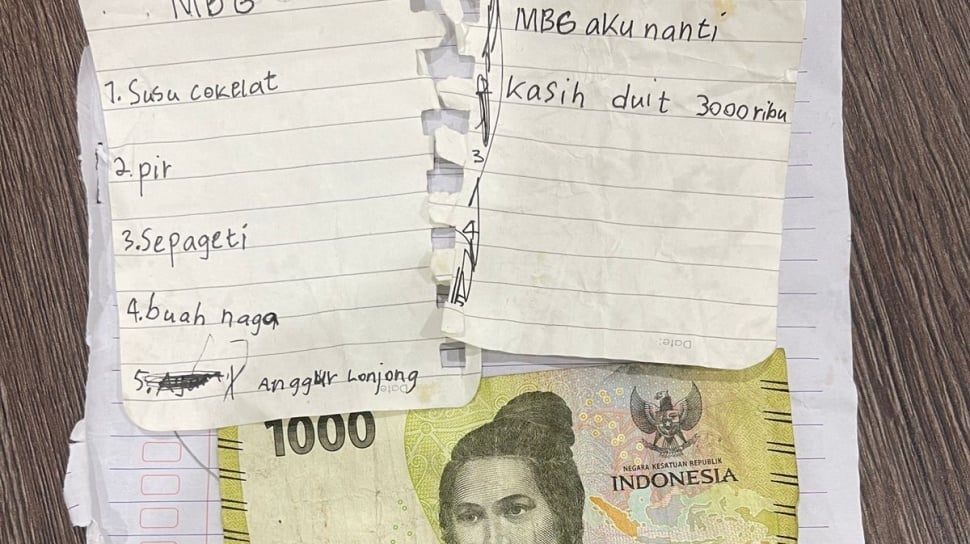 MBG
1. Susu cokelat
2. pir
3. Sepageti
4. buah naga
5. Anggur Lonjong
Date:
MBG aku nanti
kasih duit 3000 ribu
3
4
5
Date:
1000
NEGARA KESATUAN REPUBLIK
INDONESIA